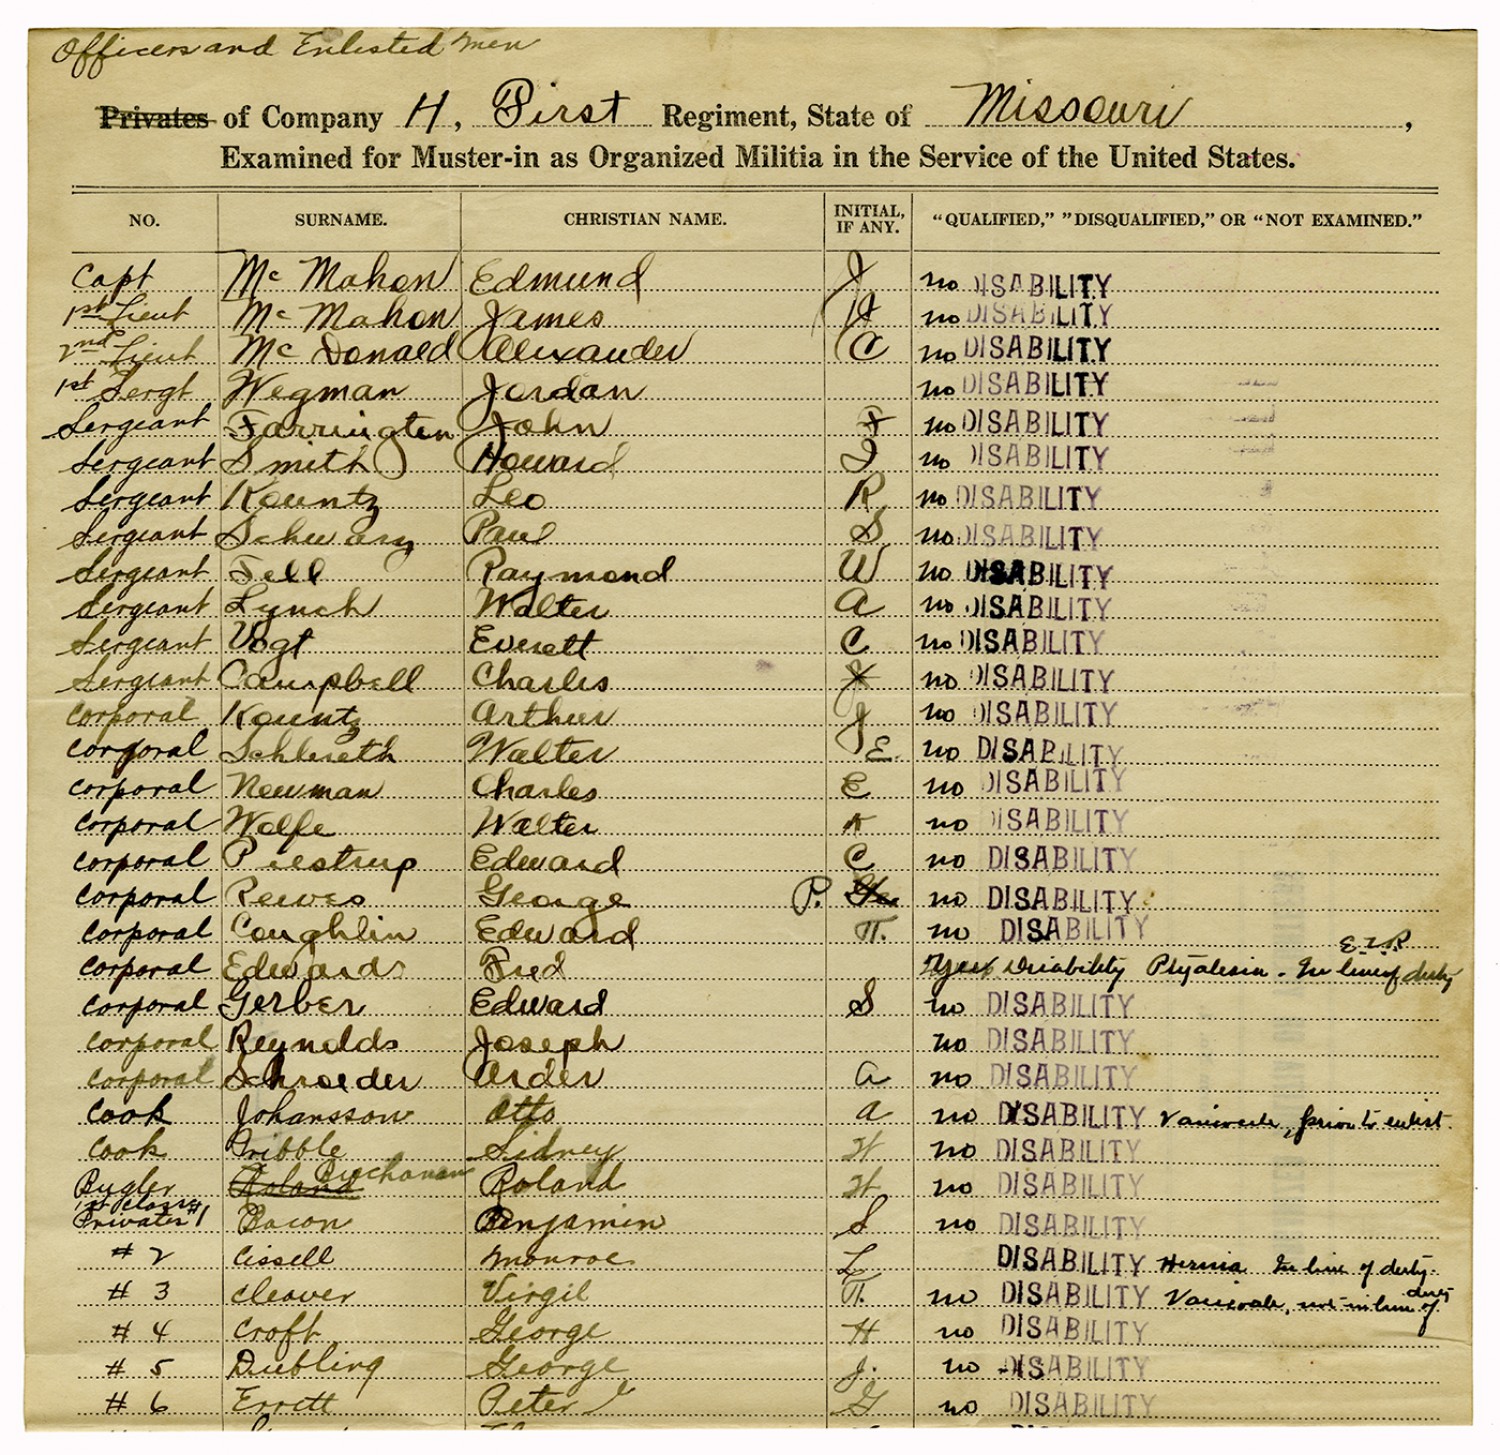 Officers and Enlisted men
Privates of Company H, First Regiment, State of Missouri,
Examined for Muster-in as Organized Militia in the Service of the United States.
NO. SURNAME. CHRISTIAN NAME. INITIAL, IF ANY. "QUALIFIED," "DISQUALIFIED," OR "NOT EXAMINED."
Capt McMahon Edmund J no DISABILITY
1st Lieut McMahon James no DISABILITY
2nd Lieut McDonald Alexander C no DISABILITY
1st Sergt Wegman Jordan no DISABILITY
Sergeant Farrington John F no DISABILITY
Sergeant Smith Howard I no DISABILITY
Sergeant Kountz Leo R no DISABILITY
Sergeant Schwarz Paul S no DISABILITY
Sergeant Fell Raymond W no DISABILITY
Sergeant Lynch Walter A no DISABILITY
Sergeant Vogt Everett C. no DISABILITY
Sergeant Campbell Charles no DISABILITY
Corporal Kountz Arthur J no DISABILITY
Corporal Schlereth Walter E. no DISABILITY
Corporal Newman Charles E no DISABILITY
Corporal Wolfe Walter no DISABILITY
Corporal Piestrup Edward C no DISABILITY
Corporal Reeves George P. no DISABILITY
Corporal Coughlin Edward T. no DISABILITY
E.L.R
Corporal Edwards Fred Disability In line of duty
Corporal Gerber Edward S no DISABILITY
Corporal Reynolds Joseph no DISABILITY
Corporal Schroeder Arder A no DISABILITY
Cook Johansson Otto A no DISABILITY Varicocele, prior to enlist.
Cook Dribble Sidney H no DISABILITY
Bugler Roland Buchanan Roland H no DISABILITY
1st Class Privates #1 Bacon Benjamin S no DISABILITY
# 2 Cissell Monroe L DISABILITY Hernia In line of duty.
# 3 Cleaver Virgil T. no DISABILITY Varicocele, not in line of duty
# 4 Croft George H no DISABILITY
# 5 Dubling George J. no DISABILITY
# 6 Errett Peter G no DISABILITY